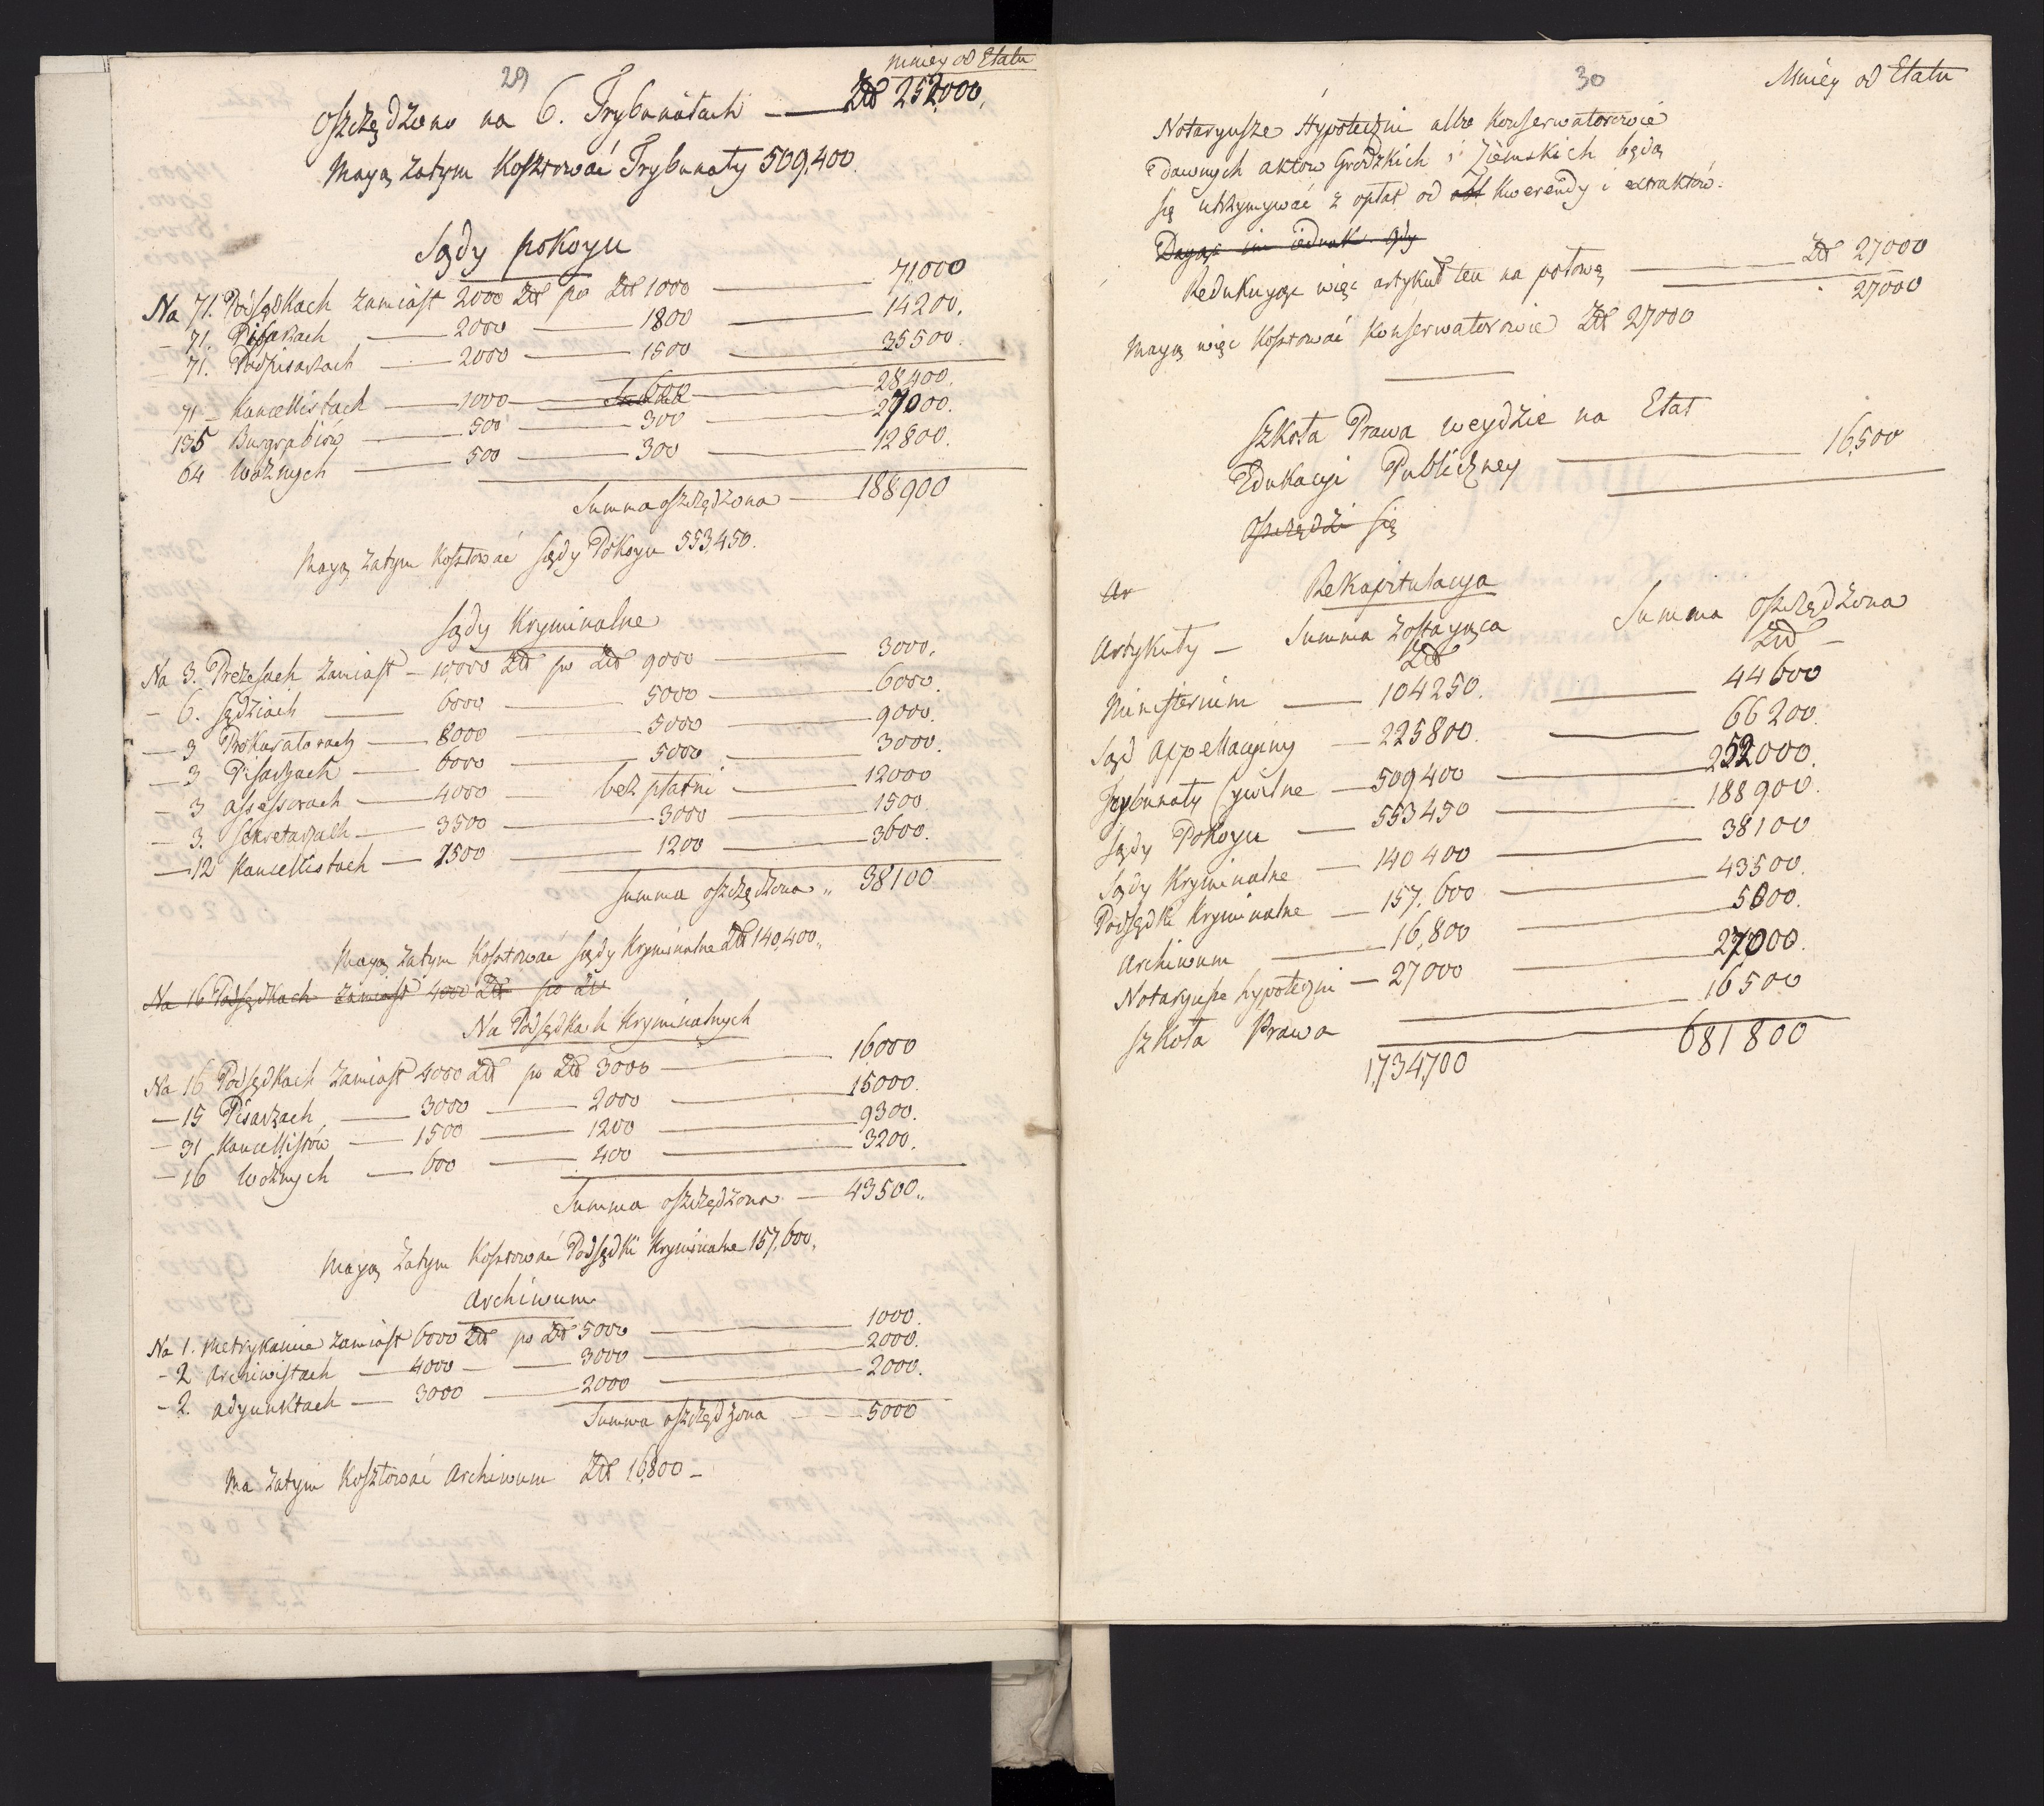 29
Mniey od Etatu
Oszczędzono na 6. Trybunałach — Złł 252000.
Mayą zatym kosztować Trybunały 509,400.
Sądy pokoyu
Na 71. Podsędkach zamiast 2000 Złł po Złł 1000 — 71.000
— 71. Pisarzach — 2000 — 1800 — 14200.
— 71. Podpisarzach — 2000 — 1500 — 35500.
71 — Kancellistach — 1000 — 600 — 28400.
135 Burgrabiów — 500 — 300 — 27000.
64 Woźnych — 500 — 300 — 12800.
Summa oszczędzona — 188900
Mayą zatym kosztować sądy Pokoyu 553450.
Sądy Kryminalne
Na 3. Prezesach zamiast — 10,000 Złł po Złł 9000 — 3000.
— 6. Sędziach — 6000 — 5000 — 6000.
— 3 Prokuratorach — 8000 — 5000 — 9000.
— 3 Pisarzach — 6000 — 5000 — 3000.
— 3 Assessorach — 4000 — bez płatni — 12000
— 3. Sekretarzach — 3500 — 3000 — 1500.
— 12 Kancellistach — 1500 — 1200 — 3600.
Summa oszczędzona „ 38100
Mayą zatym kosztować sądy Kryminalne Złł 140,400„
Na 16 Podsędkach zamiast 4000 Złł po Złł
Na Podsędkach Kryminalnych
Na 16 Podsędkach zamiast 4000 Złł po Złł 3000 — 16000
— 15 Pisarzach, — 3000 — 2000 — 15000.
— 31 Kancellistów — 1500 — 1200 — 9300.
— 16 Woźnych — 600 — 400 — 3200.
Summa oszczędzona — 43500„
Mayą zatym kosztować Podsędki Kryminalne 157,600„
Archiwum
Na 1. Metrykancie zamiast 6000 Złł po Złł 5000 — 1000.
— 2 Archiwistach — 4000 — 3000 — 2000.
— 2. Adyunktach — 3000 — 2000 — 2000.
Summa oszczędzona — 5000
Ma zatym kosztować Archiwum Złł 16,800 —
30
Mniey od Etatu
Notaryusze Hypoteczni albo Konserwatorowie
dawnych aktów Grodzkich i Ziemskich będą
się utrzymywać z opłat od Kwerendy i extraktów.
Dayąc im iednak gdy
Redukuyąc więc artykuł ten na połowę — Złł 27000
27000
Mayą więc kosztować Konserwatorowie Złł 27000
Szkoła Prawa weydzie na Etat
Edukacyi Publiczney — 16,500
Oszczędzi się
Ar
Rekapitulacya
Artykuły — Summa zostayąca Summa oszczędzona
Złł Złł —
Ministerium — 104250. — 44600
Sąd Appellacyiny — 225800. — 66200.
Trybunały Cywilne — 509400 — 252000.
Sądy Pokoyu — 553450 — 188900.
Sądy Kryminalne — 140400 — 38100
Podsędki Kryminalne — 157.600 — 43500.
Archiwum — 16,800 — 5000.
Notaryusze hypoteczni — 27000 — 27000.
Szkoła Prawa — 16500
1,734,700 681800